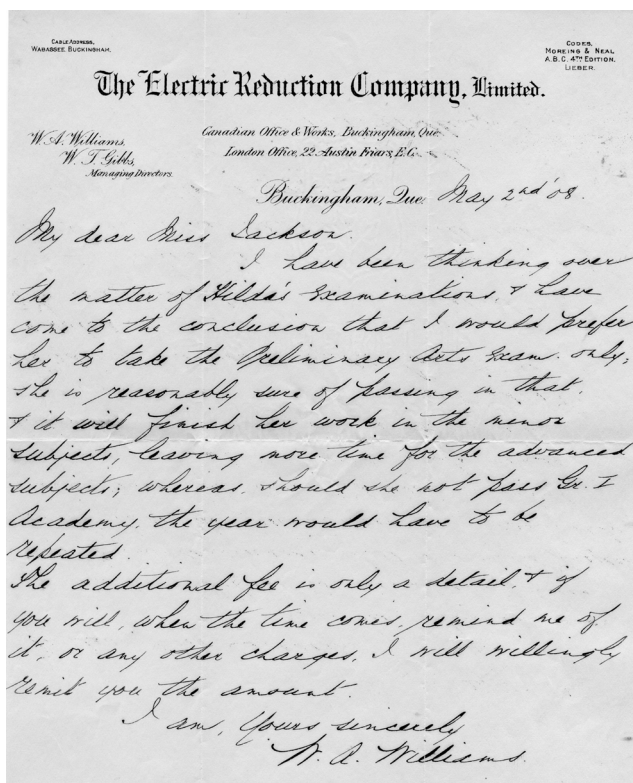 CABLE ADDRESS,
WABASSEE, BUCKINGHAM.
CODES,
MOREING & NEAL
A.B.C. 4TH EDITION.
LIEBER.
The Electric Reduction Company, Limited.
W. A. Williams,
W. T. Gibbs,
Managing Directors.
Canadian Office & Works, Buckingham, Que.
London Office, 22 Austin Friars, E.C.
Buckingham, Que. May 2nd '08.
My dear Miss Jackson.
I have been thinking over
the matter of Hilda's Examinations, & have
come to the conclusion that I would prefer
her to take the Preliminary Arts Exam. only;
she is reasonably sure of passing in that,
& it will finish her work in the minor
subjects, leaving more time for the advanced
subjects; whereas, should she not pass Gr. I
Academy, the year would have to be
repeated.
The additional fee is only a detail, & if
you will, when the time comes, remind me of
it, or any other charges, I will willingly
remit you the amount.
I am, Yours sincerely
W. A. Williams.